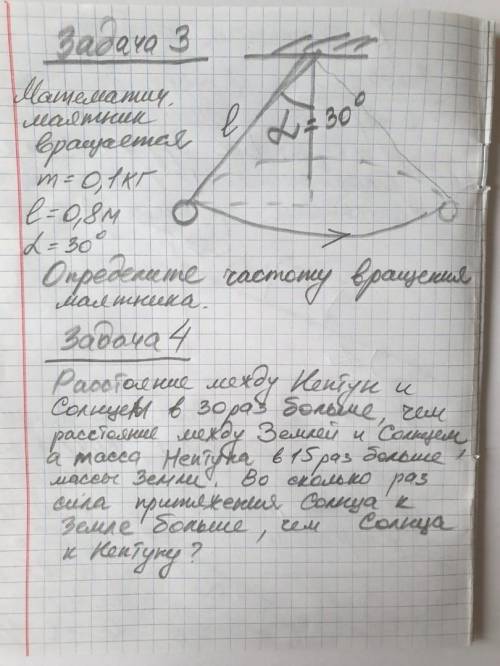 Задача 3
Математич.
маятник
вращается
m = 0,1 кг
l = 0,8 м
α = 30°
l
α = 30°
Определите частоту вращения
маятника.
Задача 4
Расстояние между Нептун и
Солнцем в 30 раз больше, чем
расстояние между Землей и Солнцем,
а масса Нептуна в 15 раз больше
массы Земли. Во сколько раз
сила притяжения Солнца к
Земле больше, чем Солнца
к Нептуну?